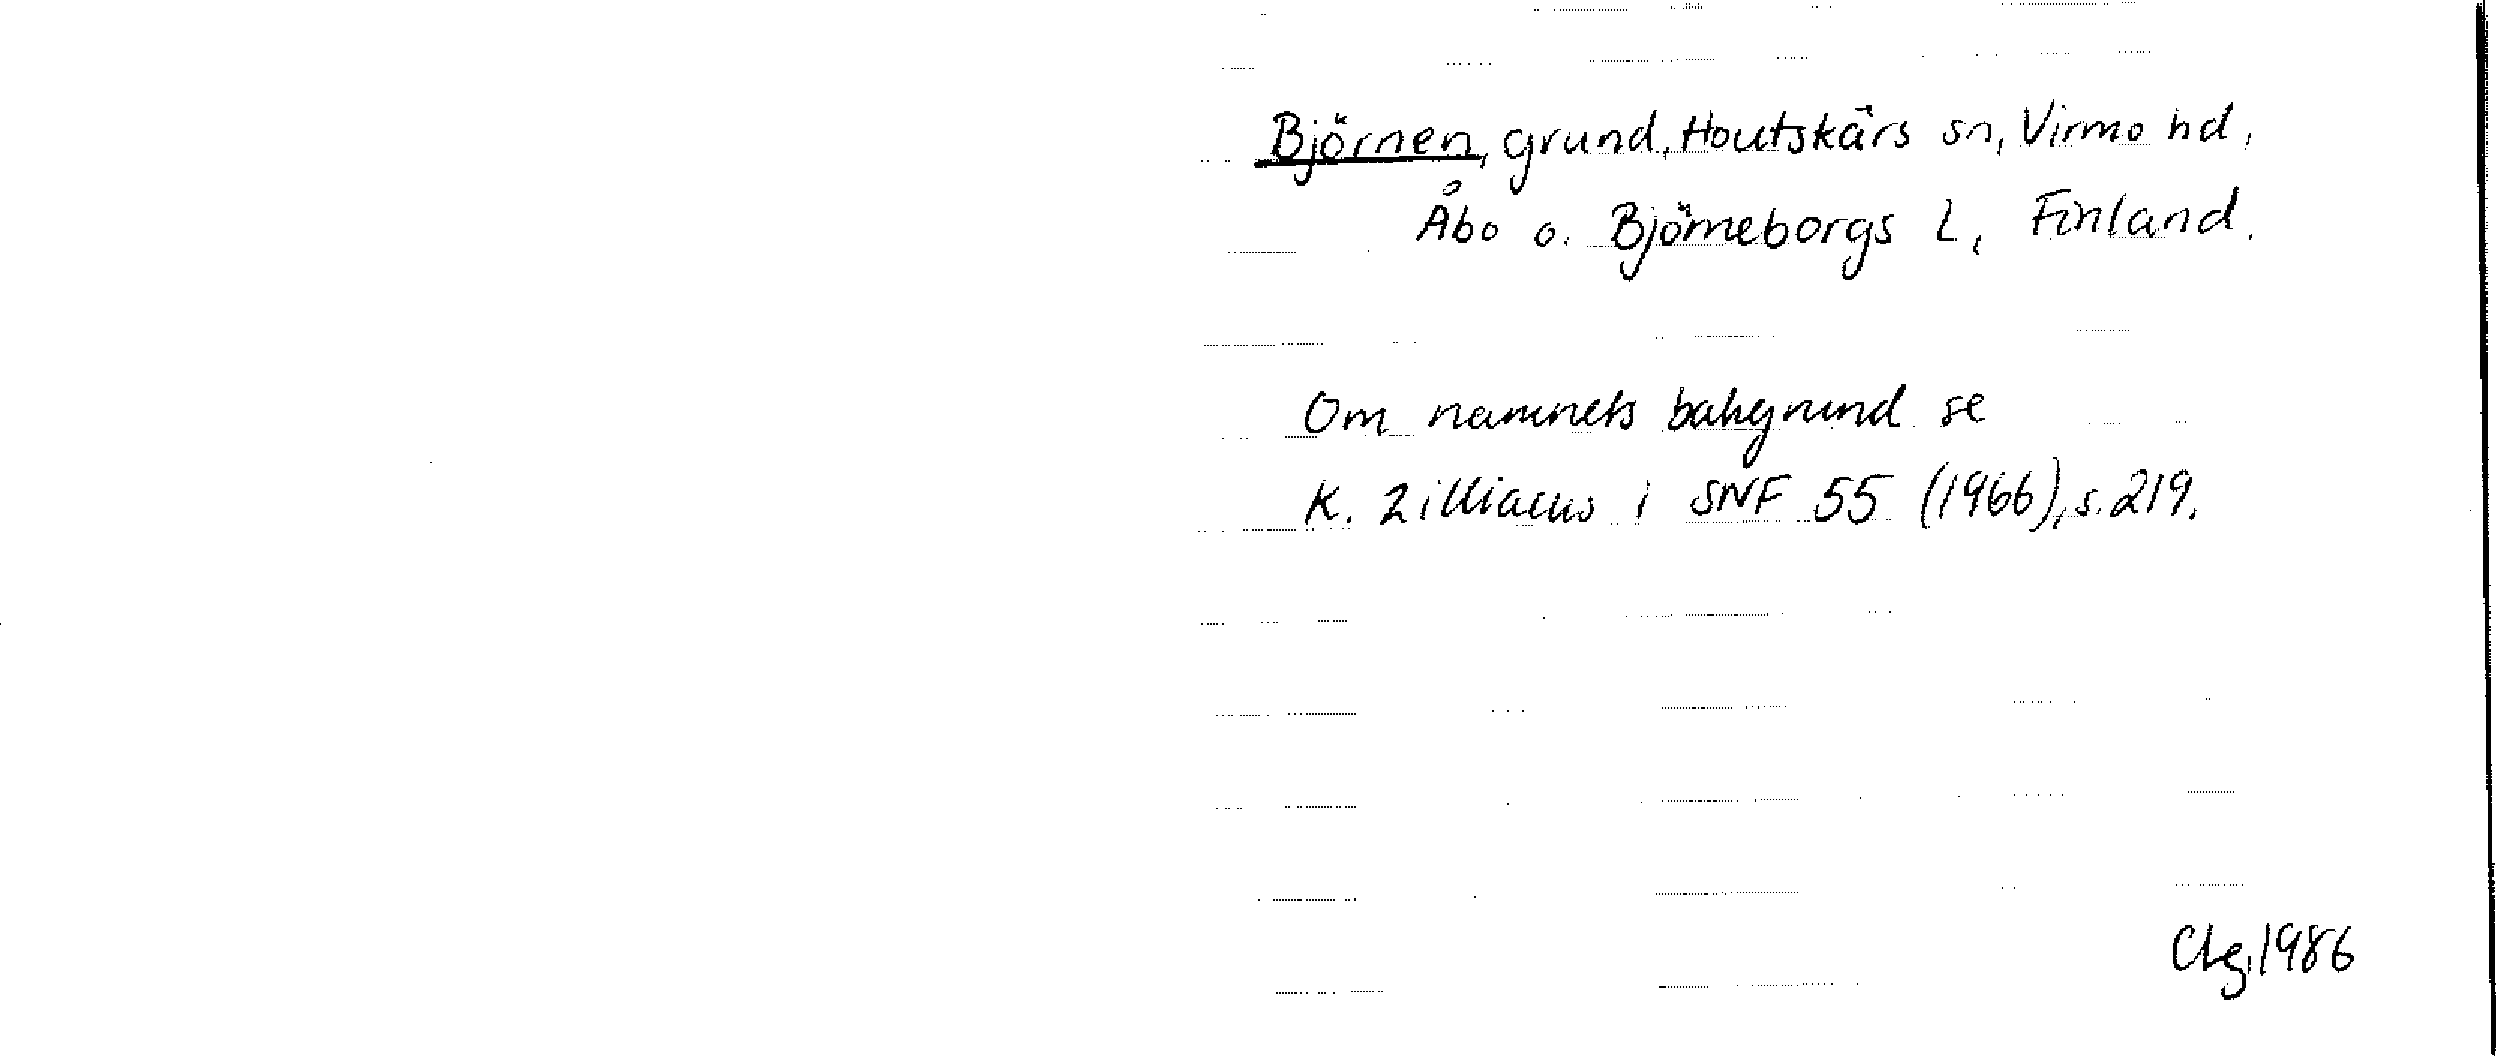 Björnen, grund, Houtskärs sn, Virmo hd,
Åbo o. Björneborgs l, Finland.
Om namnets bakgrund se
K. Zilliacus i SNF 55 (1966), s. 219.
1986